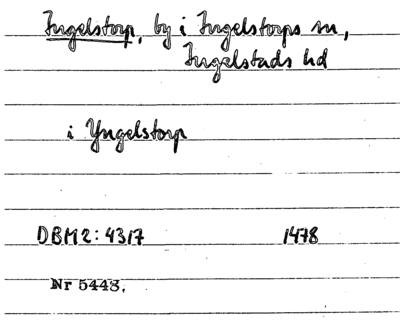 Ingelstorp, by i Ingelstorps sn,
Ingelstads hd
i Yngelstorp
DBM2:4317 1478
Nr 5448.